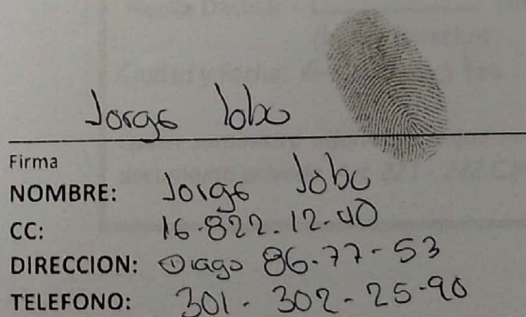 Jorge lobo
Firma
NOMBRE: Jorge Jobo
CC: 16-822-12-40
DIRECCION: Diago 86-77-53
TELEFONO: 301-302-25-90